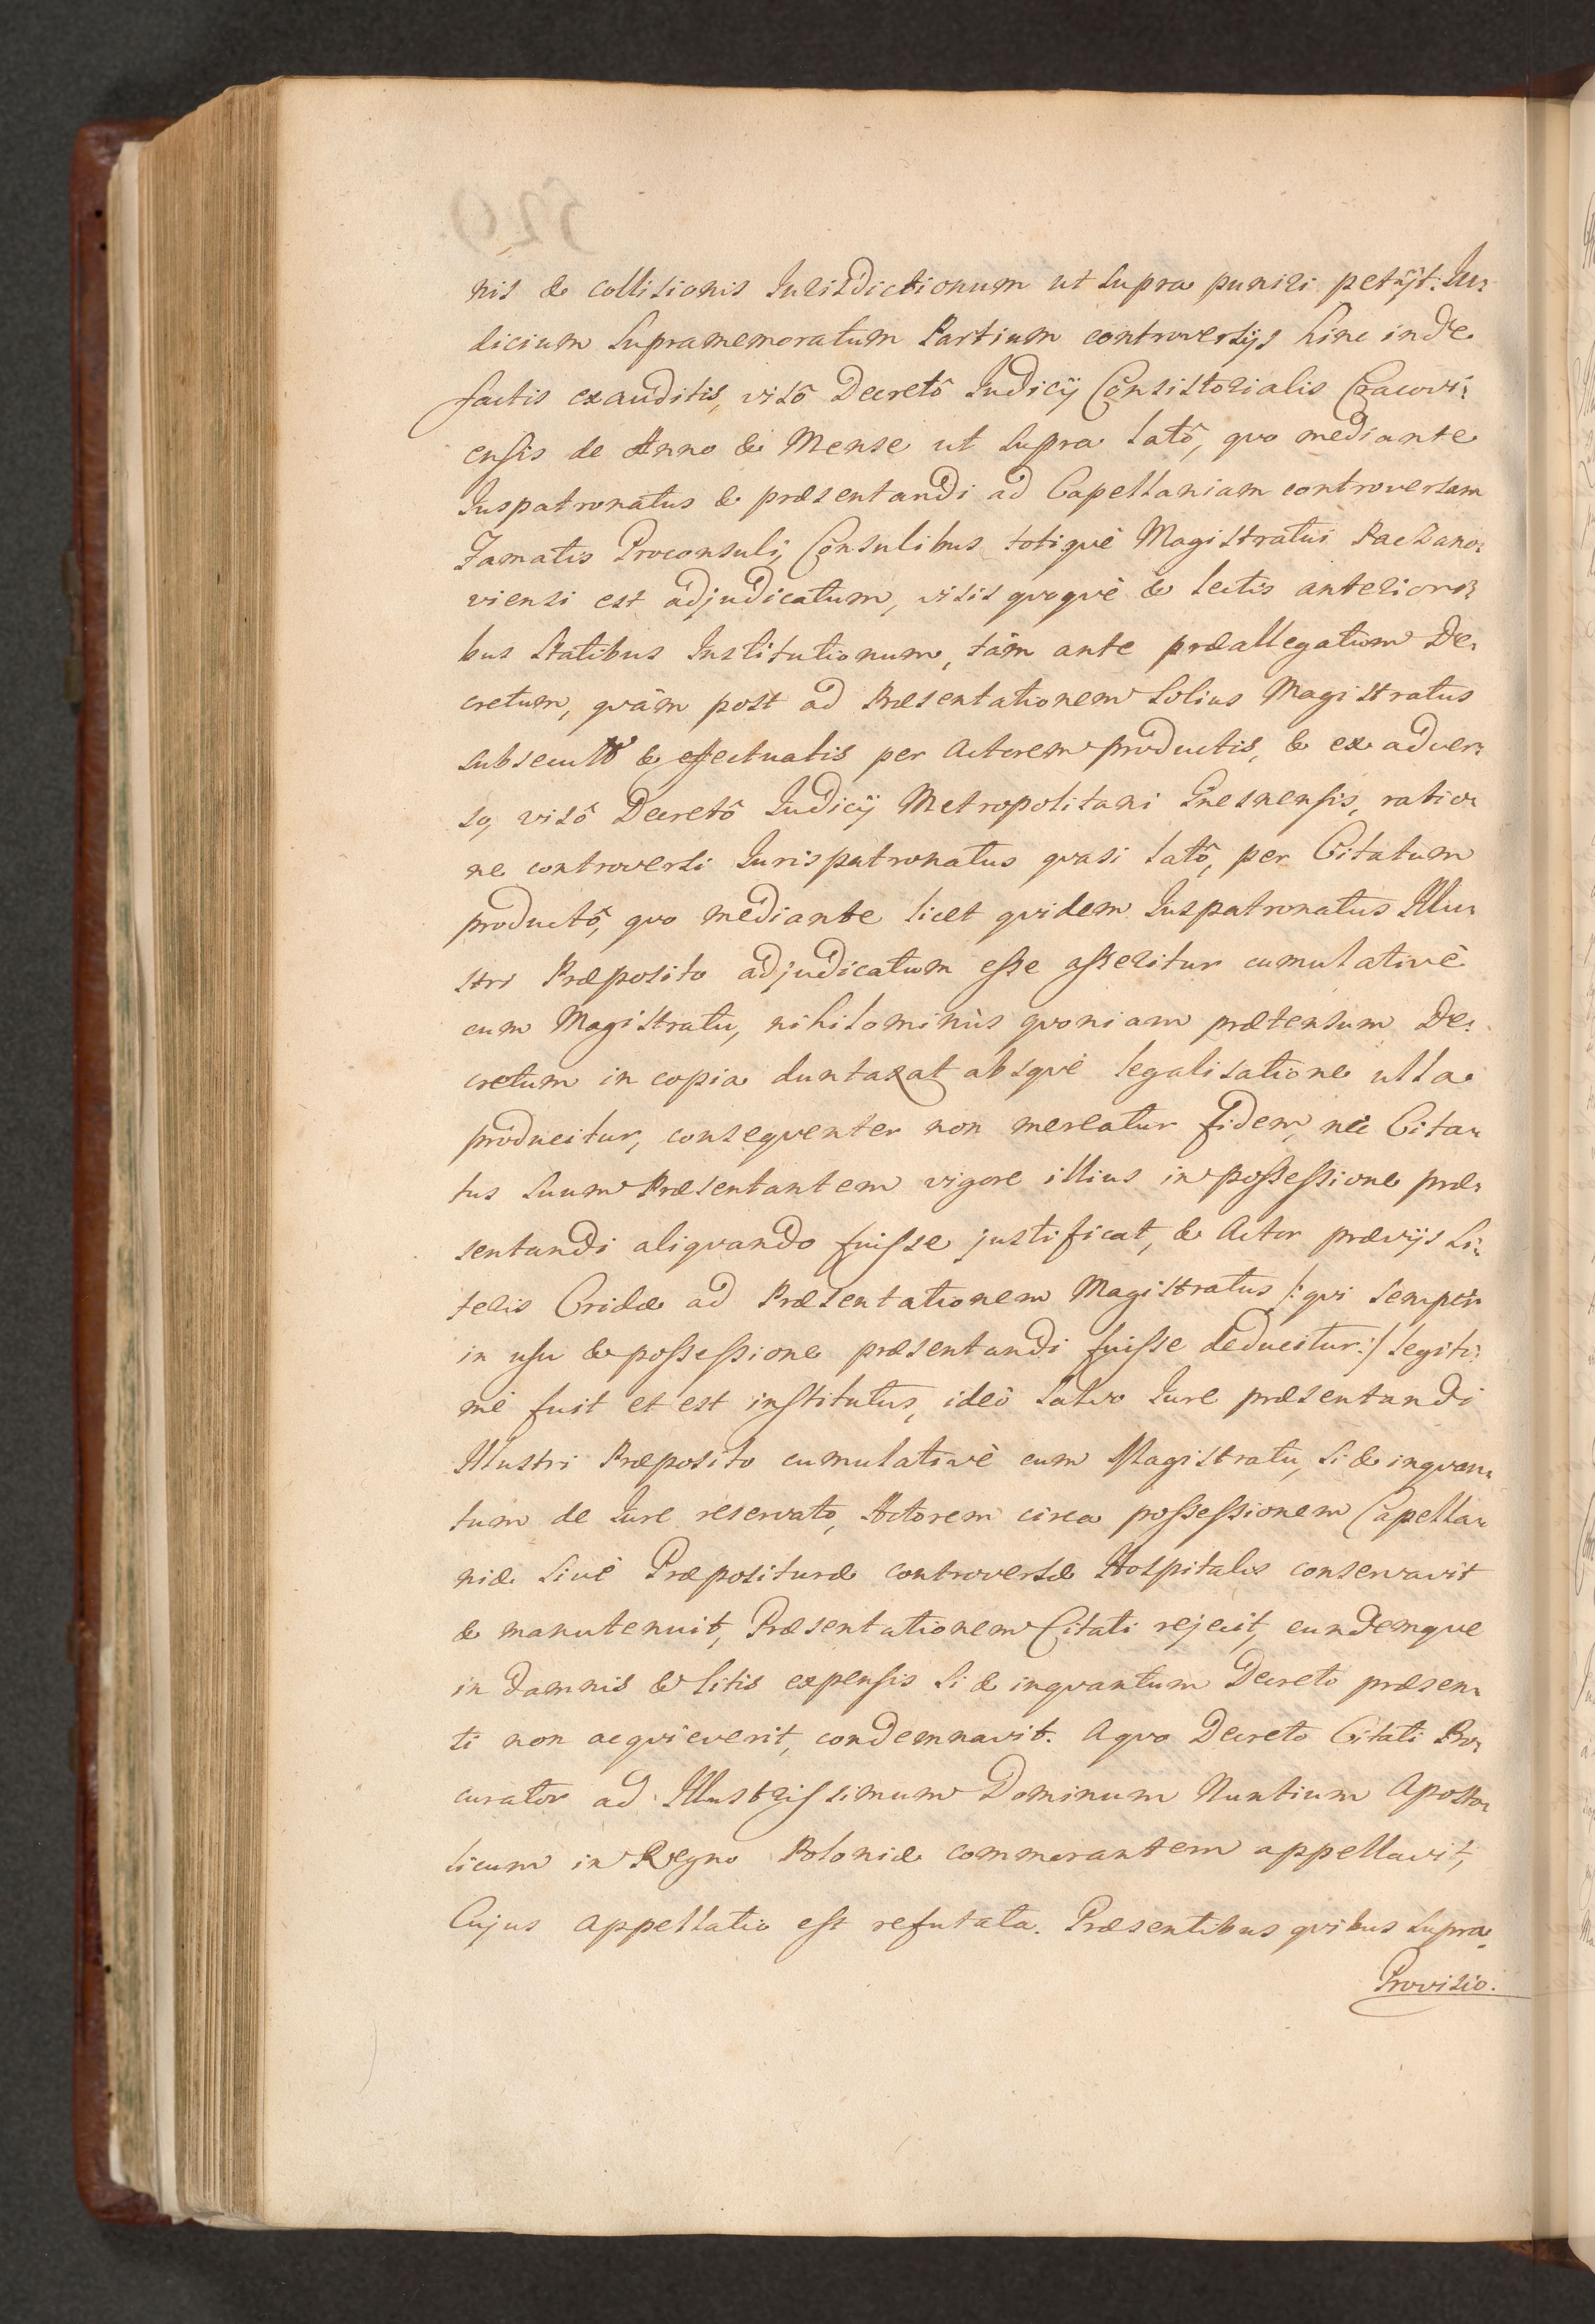 nis & collisionis Jurisdictionum ut supra puniri petijt. Ju-
dicium supramemoratum Partium controversijs hinc inde
factis exauditis, visô Decretô Judicij Consistorialis Cracovi-
ensis de Anno & Mense ut supra latô, quo mediante
Juspatronatus & præsentandi ad Capellaniam controversam
Famatis Proconsuli, Consulibus totiquè Magistratui Paczano-
viensi est adjudicatum, visis quoquè & lectis anteriori-
bus Statibus Institutionum, tàm ante præallegatum De-
cretum, quàm post ad Præsentationem solius Magistratus
subsecutis & effectuatis per Actorem productis, & ex adver-
so, visô Decretô Judicij Metropolitani Gnesnensis, ratio-
ne controversi Jurispatronatus quasi latô, per Citatum
productô, quo mediante licet quidem Juspatronatus Illu-
stri Præposito adjudicatum esse asseritur cumulativè
cum Magistratu, nihilominùs quoniam prætensum De-
cretum in copia duntaxat absquè legalisatione ulla
producitur, consequenter non mereatur fidem, nec Cita-
tus suum Præsentantem vigore illius in possessione præ-
sentandi aliquando fuisse justificat, & Actor prævijs Li-
teris Cridæ ad Præsentationem Magistratus /: qui semper
in usu & possessione præsentandi fuisse deducitur :/ legiti-
mè fuit et est institutus, ideò salvo Jure præsentandi
Illustri Præposito cumulativè cum Magistratu, si & inquan-
tum de Jure reservato, Actorem circa possessionem Capella-
niæ sivè Præposituræ controversæ Hospitalis conservavit
& manutenuit, Præsentationem Citati rejecit, eundemque
in damnis & litis expensis si & inquantum Decreto præsen-
ti non acquieverit, condemnavit. A quo Decreto Citati Pro-
curator ad Illustrissimum Dominum Nuntium Aposto-
licum in Regno Poloniæ commorantem appellavit,
Cujus Appellatio est refutata. Præsentibus quibus supra.
Provisio.